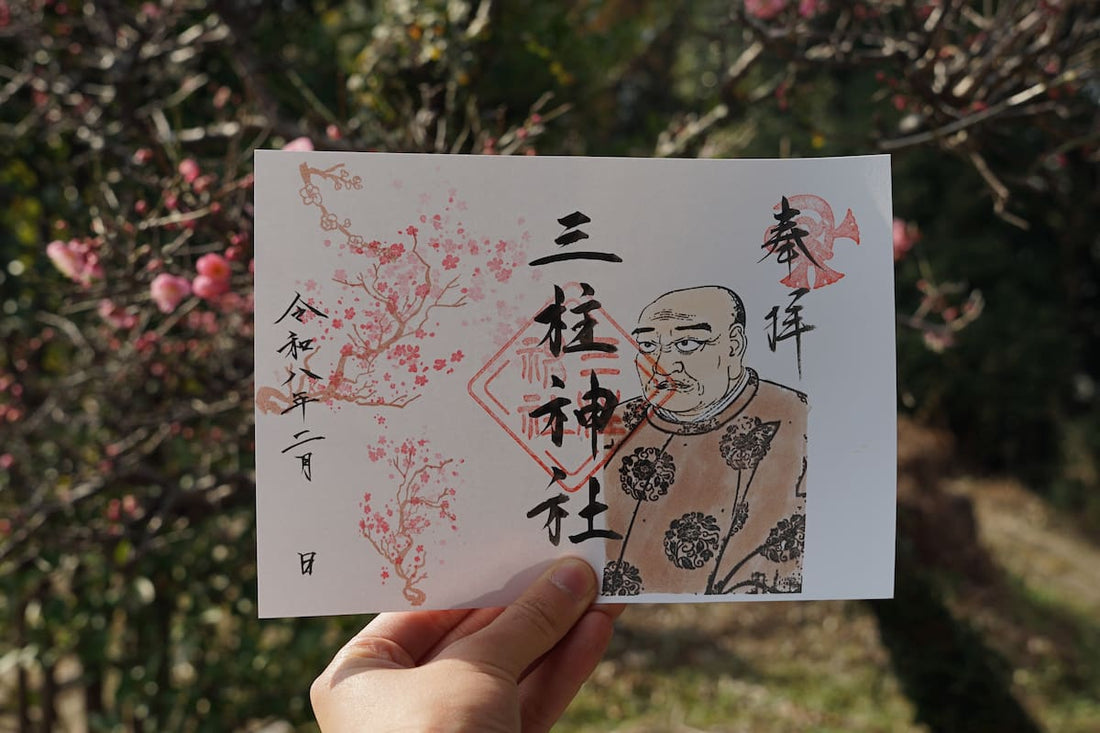 奉拝
三柱神社
令和八年二月 日